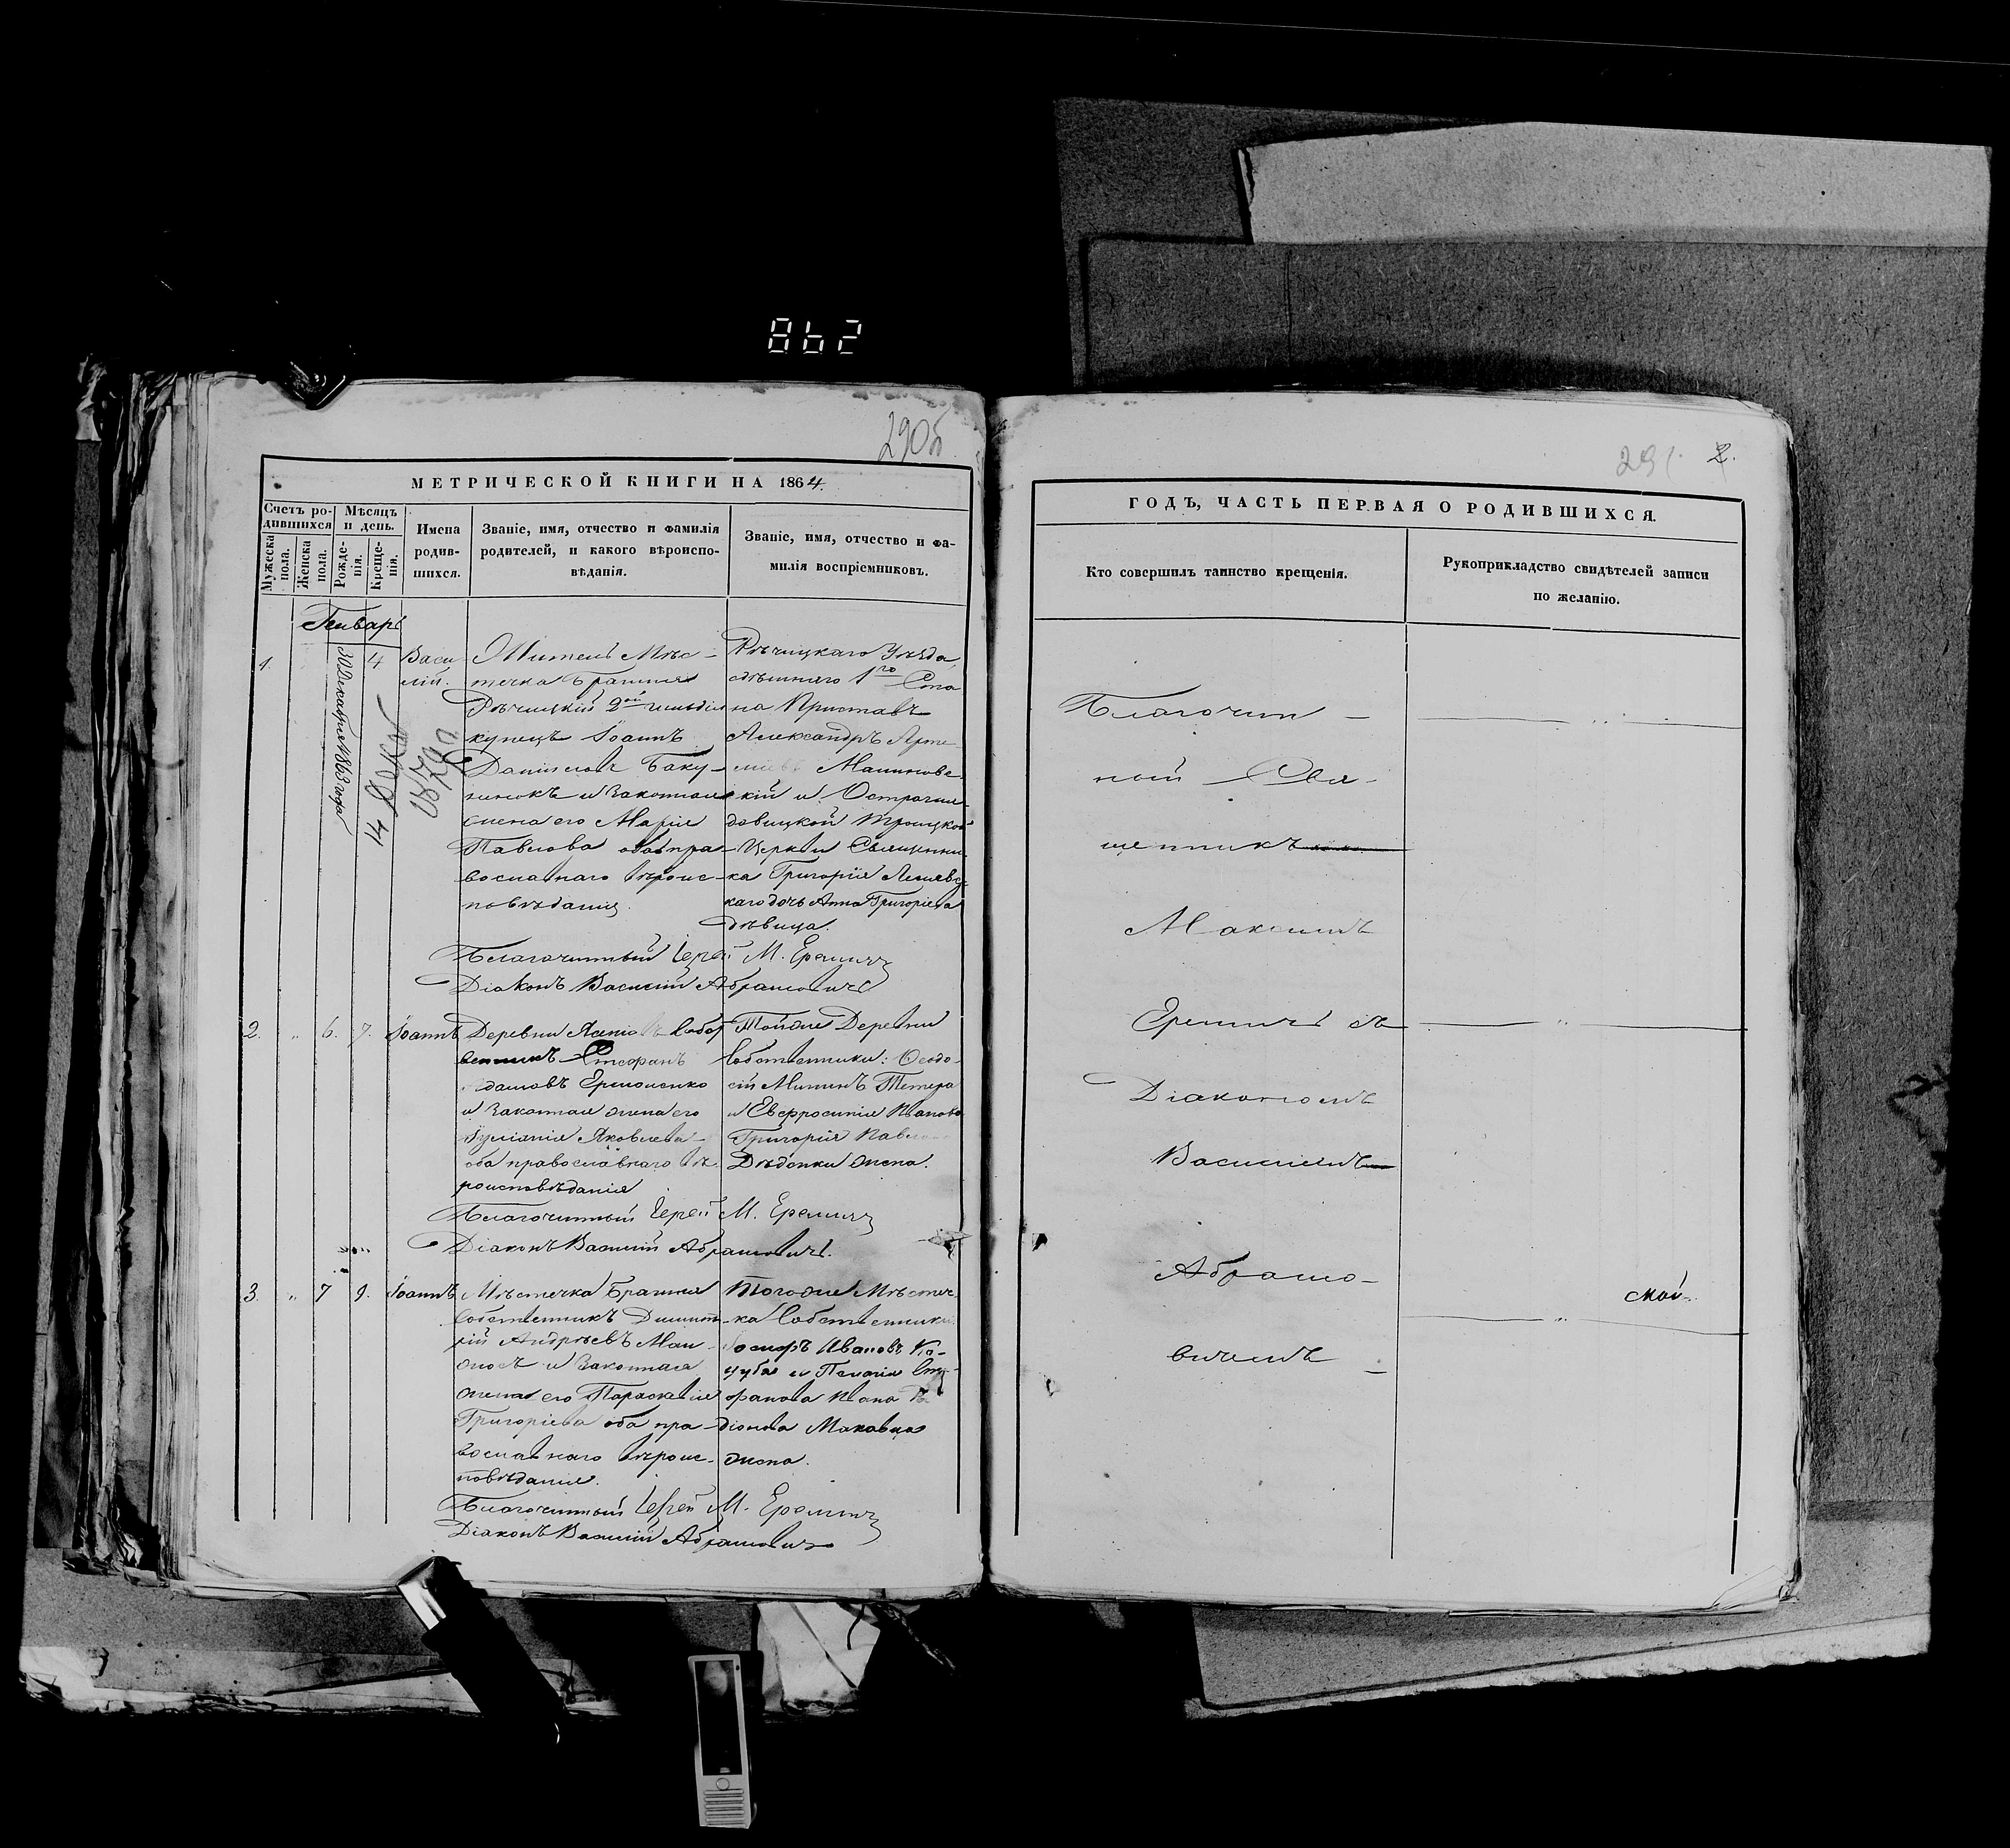 862
290б
МЕТРИЧЕСКОЙ КНИГИ НА 1864.
Счетъ ро-
дившихся
Мѣсяцъ
и день.
Мужеска
пола.
Женска
пола.
Рожде-
нія.
Креще-
нія.
Имена
родив-
шихся.
Званіе, имя, отчество и фамилія
родителей, и какого вѣроиспо-
вѣданія.
Званіе, имя, отчество и фа-
милія воспріемниковъ.
Генварь
1.
30 Декабря 1863 года
4
Васи
лій.
Житель Мѣс-
течка Брагиня
Рѣчицкій 2ой гильдіи
купецъ Іоаннъ
Данііловъ Баку-
и Законная
жена его Марія
Павлова оба пра-
вославнаго вѣроис-
повѣданія.
Рѣчицкаго Уѣзда
1го Ста
на Приставъ
Александръ
Малиновс
кій и
Троицкой
Церкви Священни
ка Григорія
каго дочь Анна Григоріева
дѣвица.
Благочинный Іерей М. Еремичъ
Діаконъ Василій Абрамовичъ
2.
"
6.
7.
Іоаннъ
Деревни Собст
венникъ Стефанъ
Адамовъ Ермоленко
и Законная жена его
Іуліанія Яковлева
оба православнаго вѣ
роисповѣданія
Тойже Деревни
Собственники: Ѳеодо-
сій Мининъ Тетера
и Евфросинія Иванова
Григорія
Дѣденки жена.
Благочинный Іерей М. Еремичъ
Діаконъ Василій Абрамовичъ.
3.
"
7
9.
Іоаннъ
Мѣстечка Брагиня
Собственникъ Димит
рій Андреевъ
и Законная
жена его Параскевія
Григоріева оба пра-
вославнаго вѣроис-
повѣданія.
Тогоже Мѣстеч
ка Собственники
Іосифъ Ивановъ Ка-
цуба и Пелагія Сте-
фанова Ивана
діонова Маковца
жена.
Благочинный Іерей М. Еремичъ
Діаконъ Василій Абрамовичъ
291. 2.
ГОДЪ, ЧАСТЬ ПЕРВАЯ О РОДИВШИХСЯ.
Кто совершилъ таинство крещенія.
Рукоприкладство свидѣтелей записи
по желанію.
Благочин-
ный Свя-
щенникъ
Максимъ
Еремичъ съ
Діакономъ
Василіемъ
Абрамо-
вичемъ